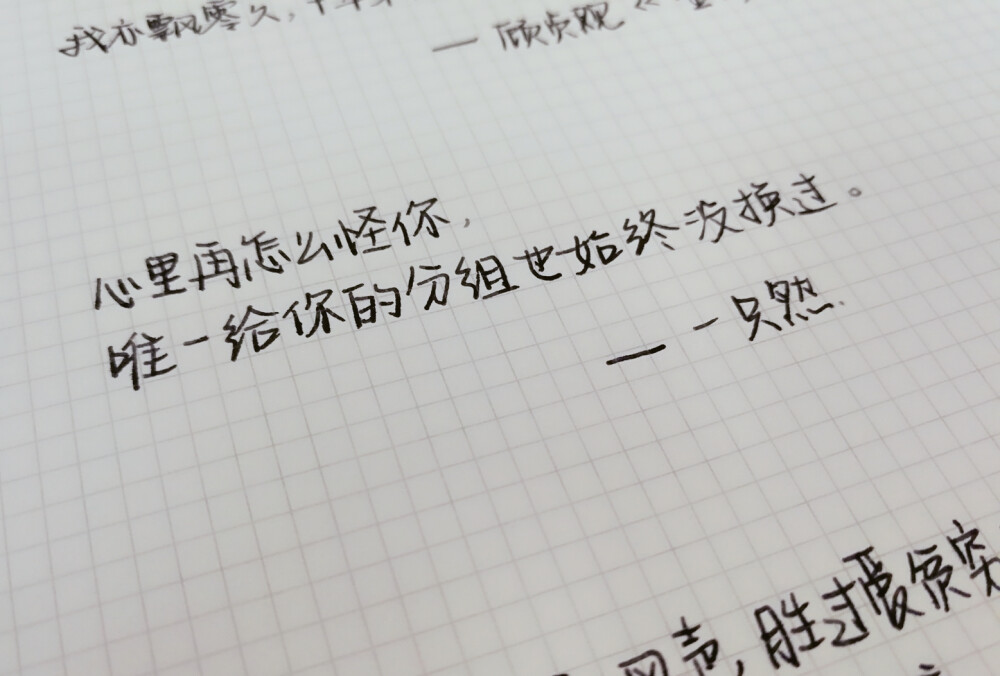 我亦飘零久,十年
— 顾贞观《
心里再怎么怪你,
唯一给你的分组也始终没换过。
— 一只然.
风声,胜过